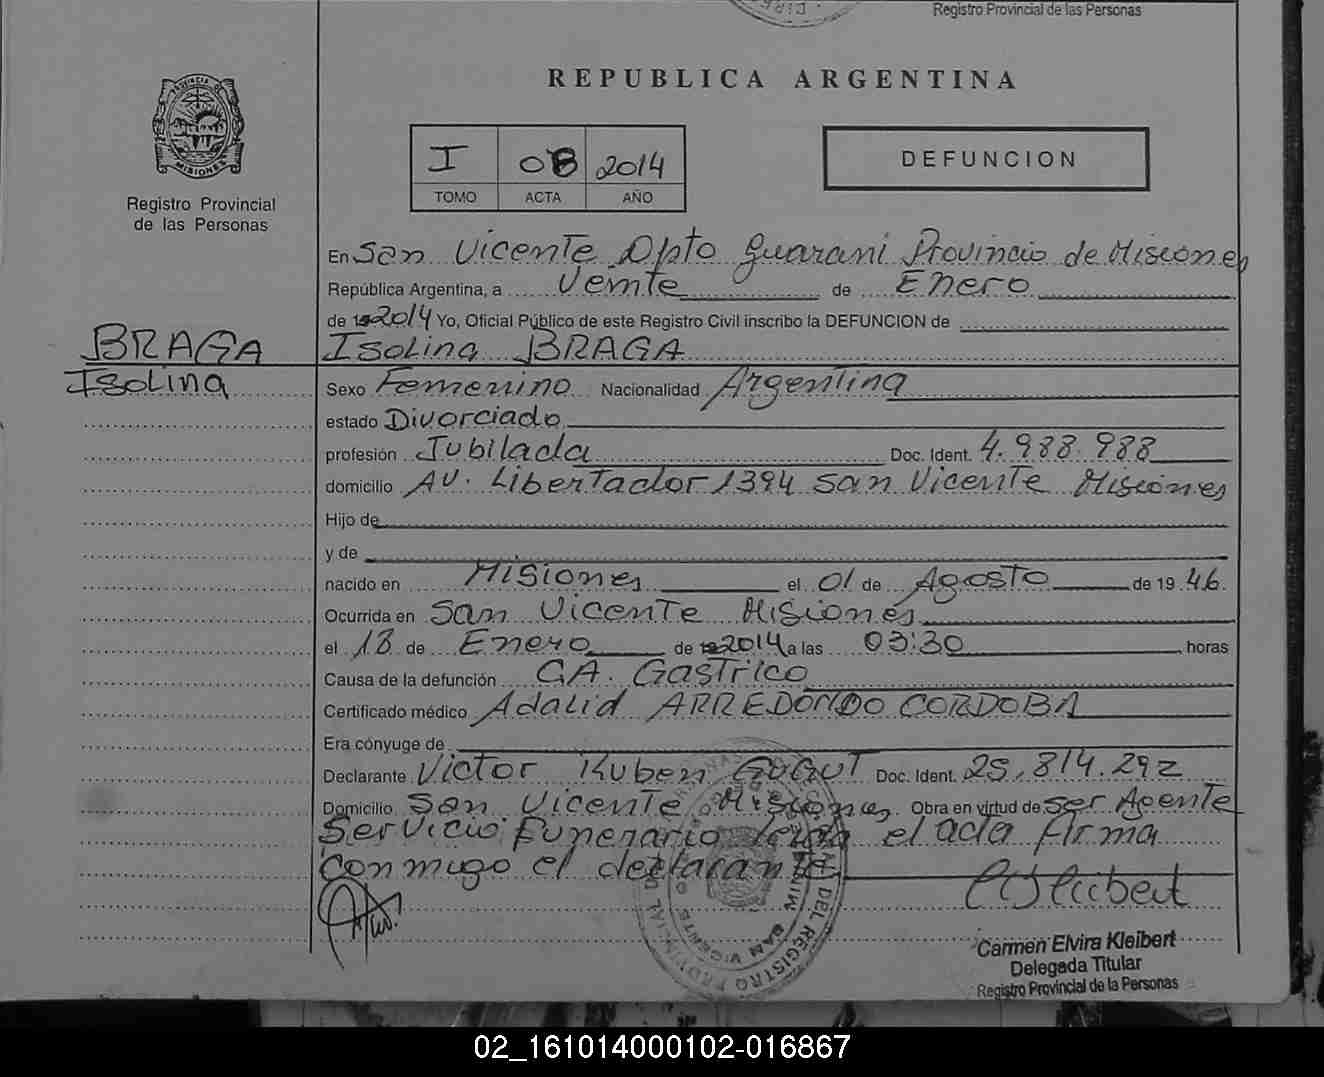 Registro Provincial de las Personas
PROVINCIA DE
MISIONES
Registro Provincial
de las Personas
REPUBLICA ARGENTINA
I 08 2014
TOMO ACTA AÑO
DEFUNCION
En San Vicente Dpto Guarani Provincia de Misiones
República Argentina, a Veinte de Enero
de 19 2014 Yo, Oficial Público de este Registro Civil inscribo la DEFUNCION de
BRAGA
Isolina
Isolina BRAGA
Sexo Femenino Nacionalidad Argentina
estado Divorciado
profesión Jubilada Doc. Ident. 4.988.988
domicilio AV. Libertador 1394 San Vicente Misiones
Hijo de
y de
nacido en Misiones el 01 de Agosto de 19 46.
Ocurrida en San Vicente Misiones
el 18 de Enero de 19 2014 a las 03:30 horas
Causa de la defunción CA. Gastrico
Certificado médico Adalid ARREDONDO CORDOBA
Era cónyuge de
Declarante Victor Ruben Doc. Ident. 25.814.292
Domicilio San Vicente Misiones Obra en virtud de ser Agente
Servicio Funerario leida el acta firma
conmigo el declarante
Carmen Elvira Kleibert
Delegada Titular
Registro Provincial de la Personas
02_161014000102-016867